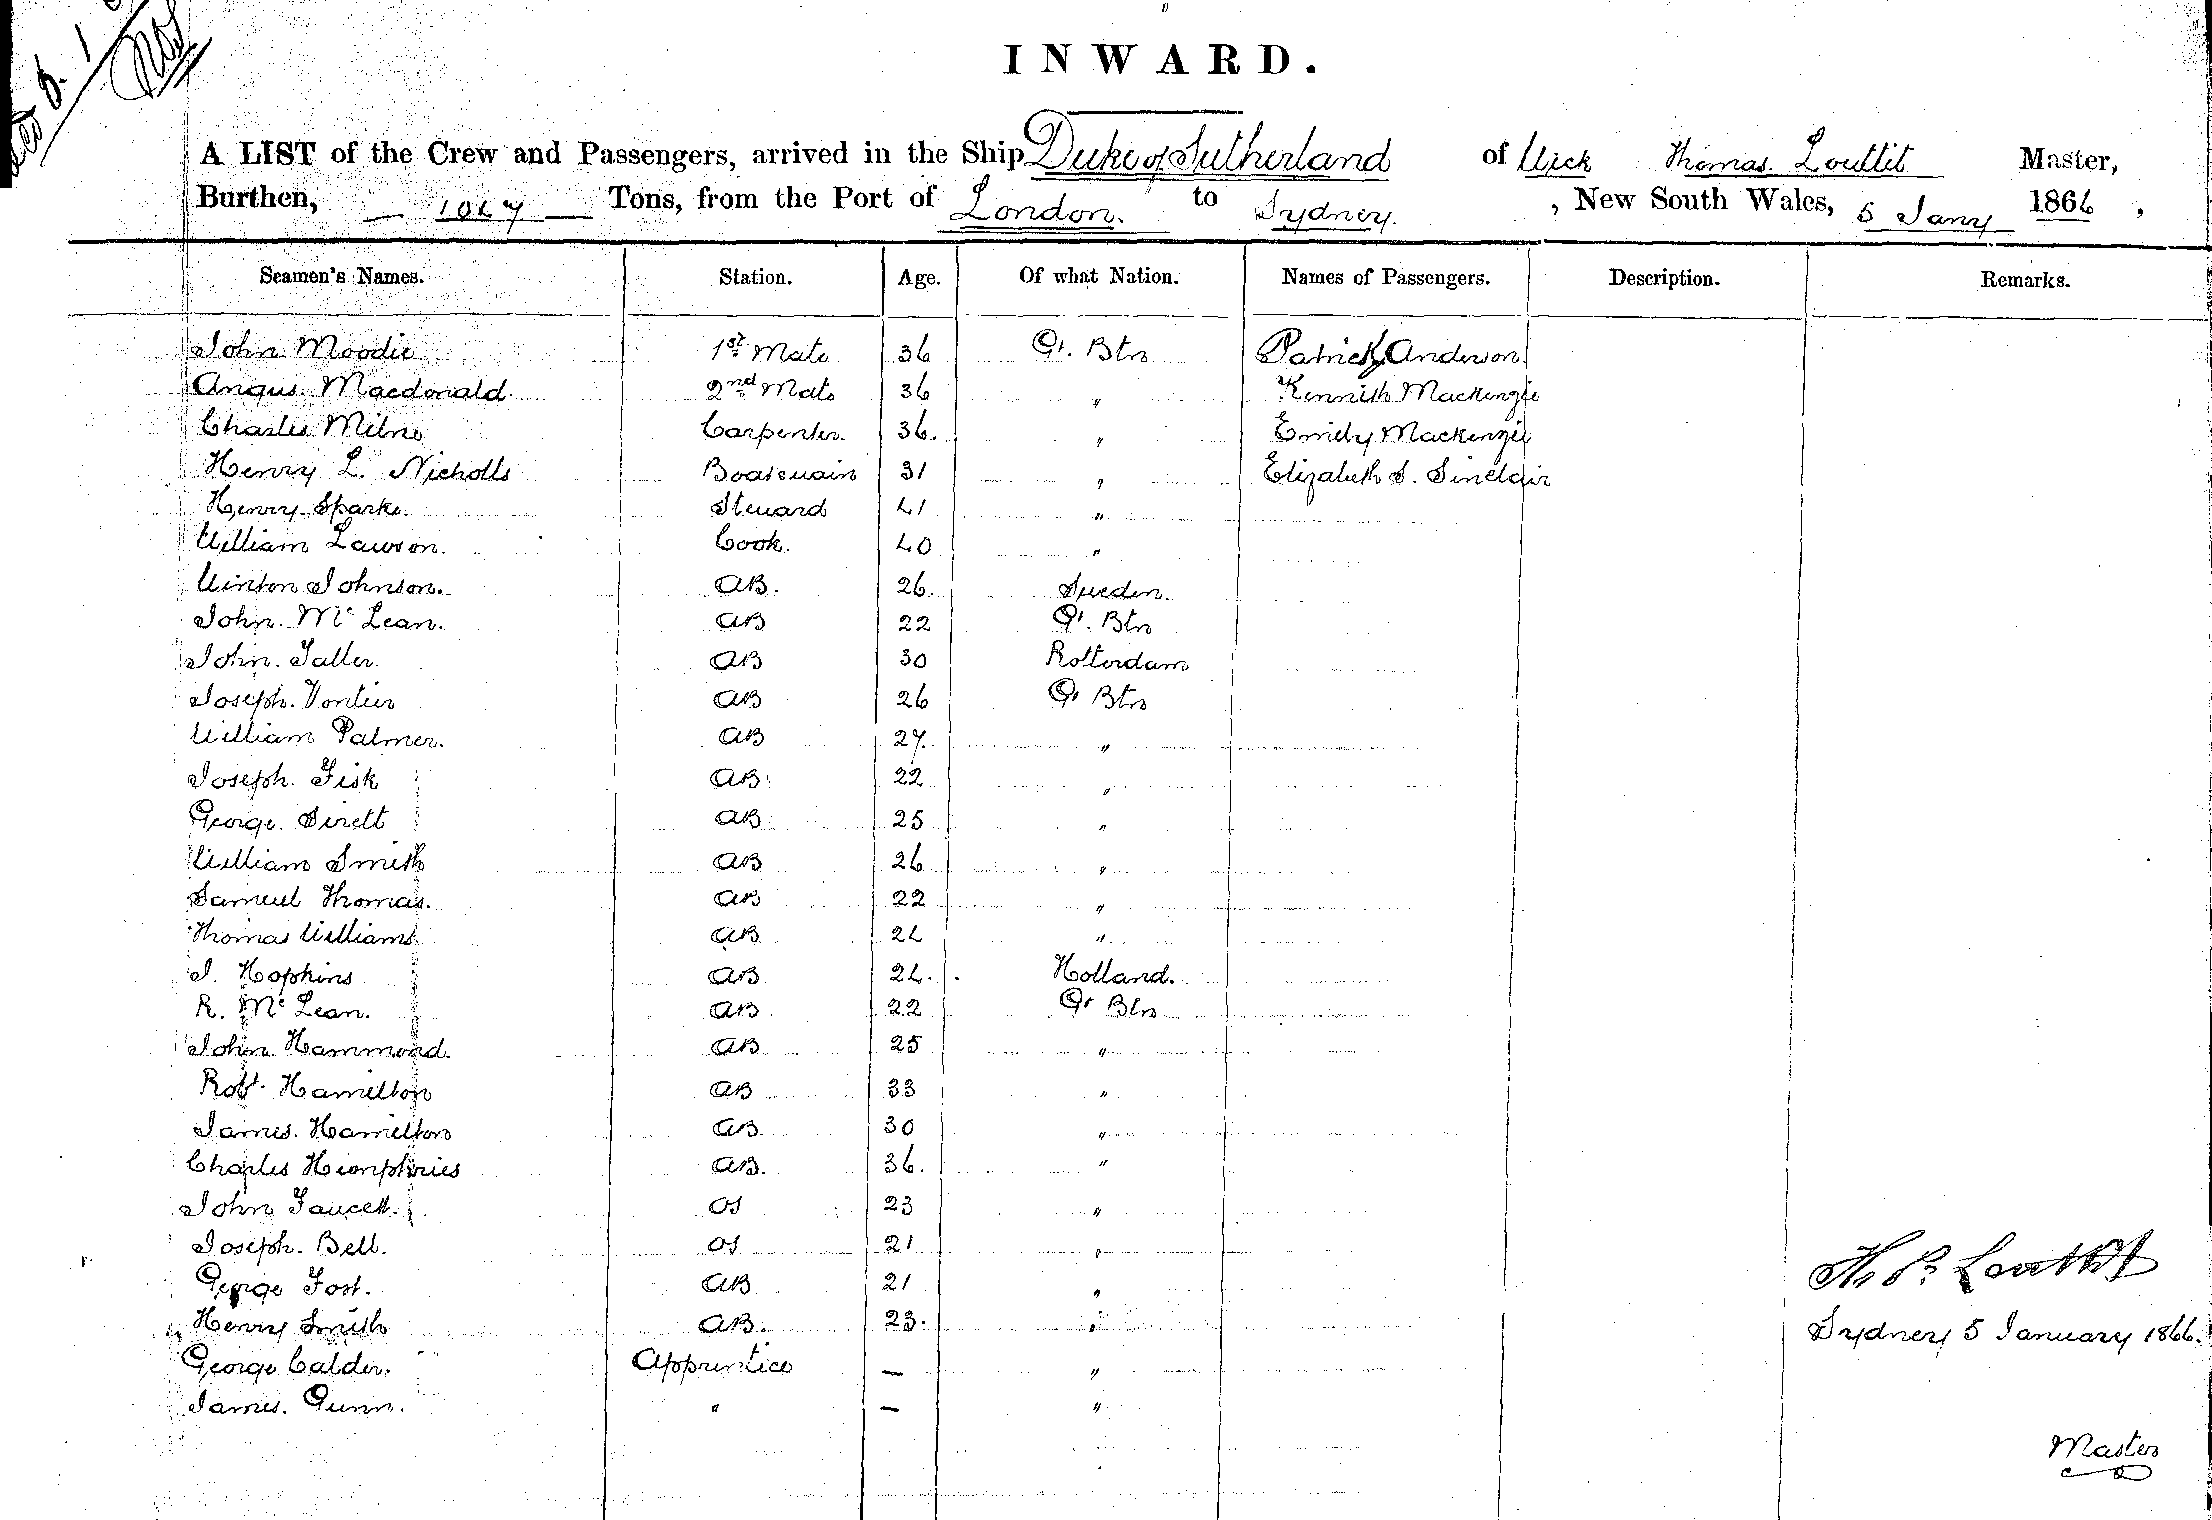 INWARD.
A LIST of the Crew and Passengers, arrived in the Ship Duke of Sutherland of Wick Thomas Louttit Master,
Burthen, 1047 Tons, from the Port of London. to Sydney. , New South Wales, 5 Jany 1866 ,
Seamen's Names. Station. Age. Of what Nation. Names of Passengers. Description. Remarks.
John Moodie 1st Mate 36 Gt. Btn Patrick Anderson
Angus Macdonald 2nd Mate 36 " Kennith Mackenzie
Charles Milne Carpenter. 36. " Emily Mackenzie
Henry L. Nicholls Boatswain 31 " Elizabeth S. Sinclair
Henry Sparks. Steward 41 "
William Lawson. Cook. 40 "
Winton Johnson. AB. 26. Sweden.
John. McLean. AB 22 Gt. Btn
John. Taller. AB 30 Rotterdam
Joseph. Vontier AB 26 Gt Btn
William Palmer. AB 27. "
Joseph. Fisk AB 22 "
George. Sirett AB 25 "
William Smith AB 26 "
Samuel Thomas. AB 22 "
Thomas Williams. AB 22 "
J. Hopkins AB 22. Holland.
R. McLean. AB 22 Gt Btn
John Hammond. AB 25 "
Robt. Hamilton AB 33 "
James. Hamilton AB 30 "
Charles Humphries AB. 36. "
John Faucett. OS 23 "
Joseph. Bell. OS 21 "
George Fost. AB 21 "
Thos. Louttit
Henry Smith AB. 23. "
Sydney 5 January 1866.
George Calder. Apprentice — "
James. Gunn. " — "
Master